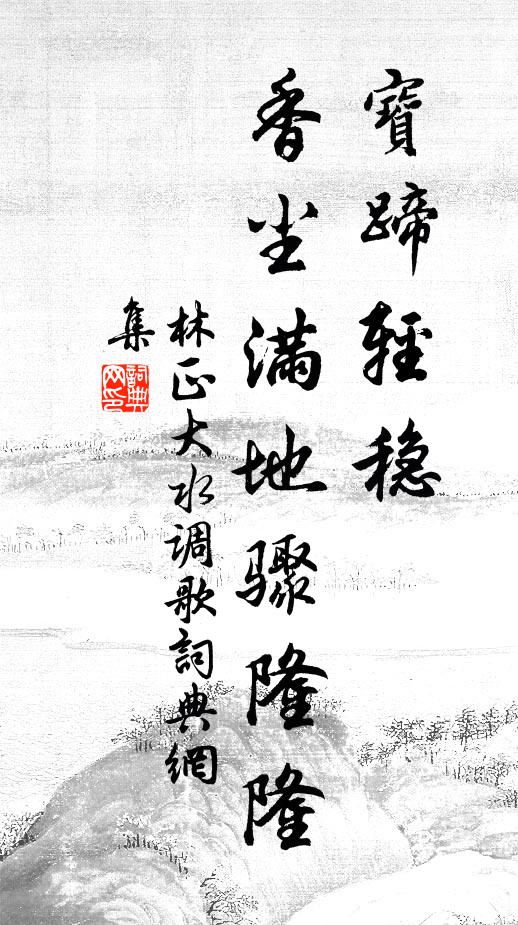 寶蹄輕穩
香尘滿地驟隆隆
林正大水调歌詞典網
集
詞典网印